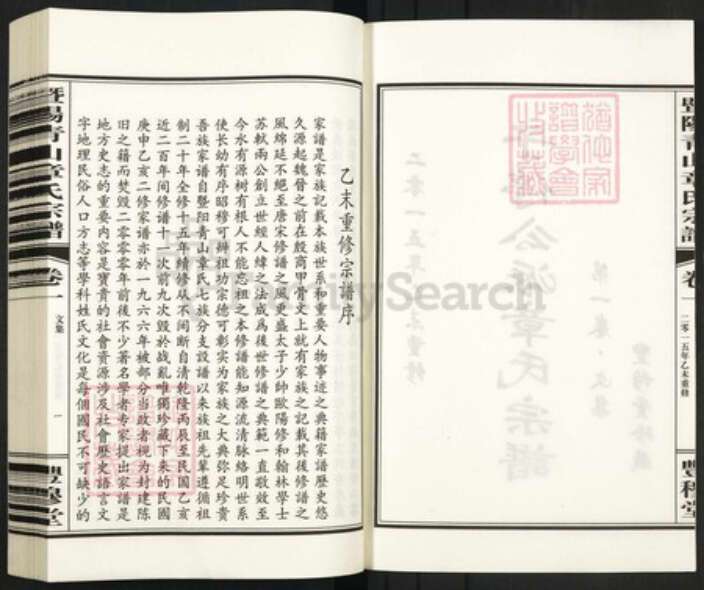 暨陽青山章氏宗譜
卷一
二零一五年乙未重修
豐穆堂
乙未重修宗譜序
家譜是家族記載本族世系和重要人物事迹之典籍家譜歷史悠
久源起魏晉之前在殷商甲骨文上就有家族之記載其後修譜之
風綿延不絕至唐宋修譜之風更盛太子少師歐陽修和翰林學士
蘇軾兩公創立世經人緯之法成爲後世修譜之典範一直敬效至
今水有源樹有根人不能忘祖之本修譜能知源流清脉絡明世系
使長幼有序昭穆可辨祖功宗德可彰實为家族之大典弥足珍貴
吾族家譜自暨阳青山章氏七族分支設譜以來族祖先輩遵循祖
制二十年全修十五年續修从不间断自清乾隆丙辰至民國乙亥
近二百年间修譜十一次前九次毀於战亂唯獨珍藏下来的民國
庚申乙亥二修家譜亦於一九六六年被部分当政者視为封建陈
旧之籍而焚毀二零零零年前後不少著名學者专家提出家譜是
地方史志的重要内容是寳貴的社會資源涉及社會歷史語言文
字地理民俗人口方志等學科姓氏文化是每個國民不可缺少的
暨陽青山章氏宗譜
卷一
文集
一
豐穆堂
FamilySearch